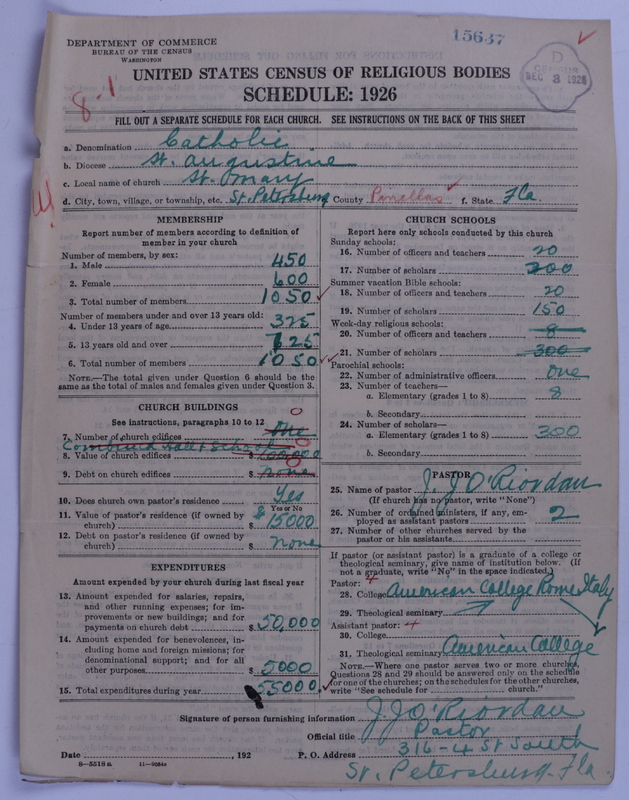 DEPARTMENT OF COMMERCE
BUREAU OF THE CENSUS
WASHINGTON
15637
D
CENSUS
DEC 3 1926
8-1
UNITED STATES CENSUS OF RELIGIOUS BODIES
SCHEDULE: 1926
FILL OUT A SEPARATE SCHEDULE FOR EACH CHURCH. SEE INSTRUCTIONS ON THE BACK OF THIS SHEET
a. Denomination Catholic
b. Diocese St. Augustine
c. Local name of church St. Mary
d. City, town, village, or township, etc. St. Petersburg County Pinellas f. State Fla
MEMBERSHIP
Report number of members according to definition of
member in your church
Number of members, by sex:
1. Male 450
2. Female 600
3. Total number of members 1050
Number of members under and over 13 years old:
4. Under 13 years of age 325
5. 13 years old and over 725
6. Total number of members 1050
NOTE.—The total given under Question 6 should be the
same as the total of males and females given under Question 3.
CHURCH BUILDINGS
See instructions, paragraphs 10 to 12
7. Number of church edifices One 0
Combined Hall & School
8. Value of church edifices $ 100,000 0
9. Debt on church edifices $ none 0
10. Does church own pastor's residence Yes
Yes or No
11. Value of pastor's residence (if owned by
church) $ $15000
12. Debt on pastor's residence (if owned by
church) $ none
EXPENDITURES
Amount expended by your church during last fiscal year
13. Amount expended for salaries, repairs,
and other running expenses; for im-
provements or new buildings; and for
payments on church debt $ 50,000
14. Amount expended for benevolences, in-
cluding home and foreign missions; for
denominational support; and for all
other purposes $ 5000
15. Total expenditures during year 55000
CHURCH SCHOOLS
Report here only schools conducted by this church
Sunday schools:
16. Number of officers and teachers 20
17. Number of scholars 200
Summer vacation Bible schools:
18. Number of officers and teachers 20
19. Number of scholars 150
Week-day religious schools:
20. Number of officers and teachers 8
21. Number of scholars 300
Parochial schools:
22. Number of administrative officers One
23. Number of teachers—
a. Elementary (grades 1 to 8) 8
b. Secondary
24. Number of scholars—
a. Elementary (grades 1 to 8) 300
b. Secondary
PASTOR
25. Name of pastor J. J. O'Riordan
(If church has no pastor, write "None")
26. Number of ordained ministers, if any, em-
ployed as assistant pastors 2
27. Number of other churches served by the
pastor or his assistants
If pastor (or assistant pastor) is a graduate of a college or
theological seminary, give name of institution below. (If
not a graduate, write "No" in the space indicated.)
Pastor: 4
28. College American College Rome Italy
29. Theological seminary
Assistant pastor: 4
30. College
31. Theological seminary American College
NOTE.—Where one pastor serves two or more churches,
Questions 28 and 29 should be answered only on the schedule
for one of the churches; on the schedules for the other churches,
write "See schedule for church."
Signature of person furnishing information J. J. O'Riordan
Official title Pastor
Date , 192 P. O. Address 316-4 St South
8—5518a 11—9954a
St. Petersburg. Fla.